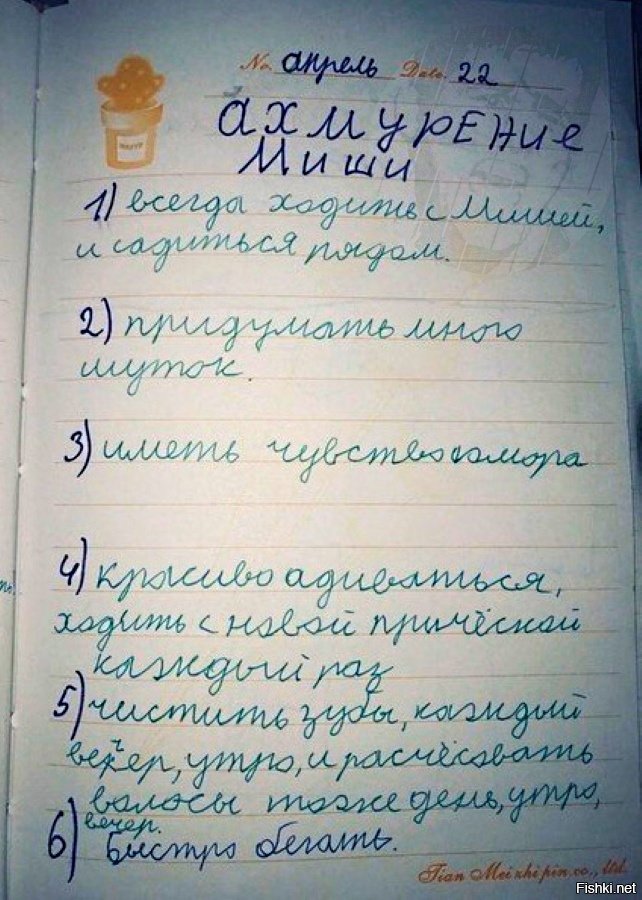 No. апрель Date. 22
ахмурение
Миши
1) всегда ходить с Мишей,
и садиться рядом.
2) придумать много
шуток.
3) иметь чувство юмора
4) красиво адиваться,
ходить с новой причёской
каждый раз
5) чистить зубы, каждый
вечер, утро, и расчёсовать
волосы тоже день, утро,
вечер.
6) Быстро бегать.
Tian Mei zhi pin co., ltd.
Fishki.net